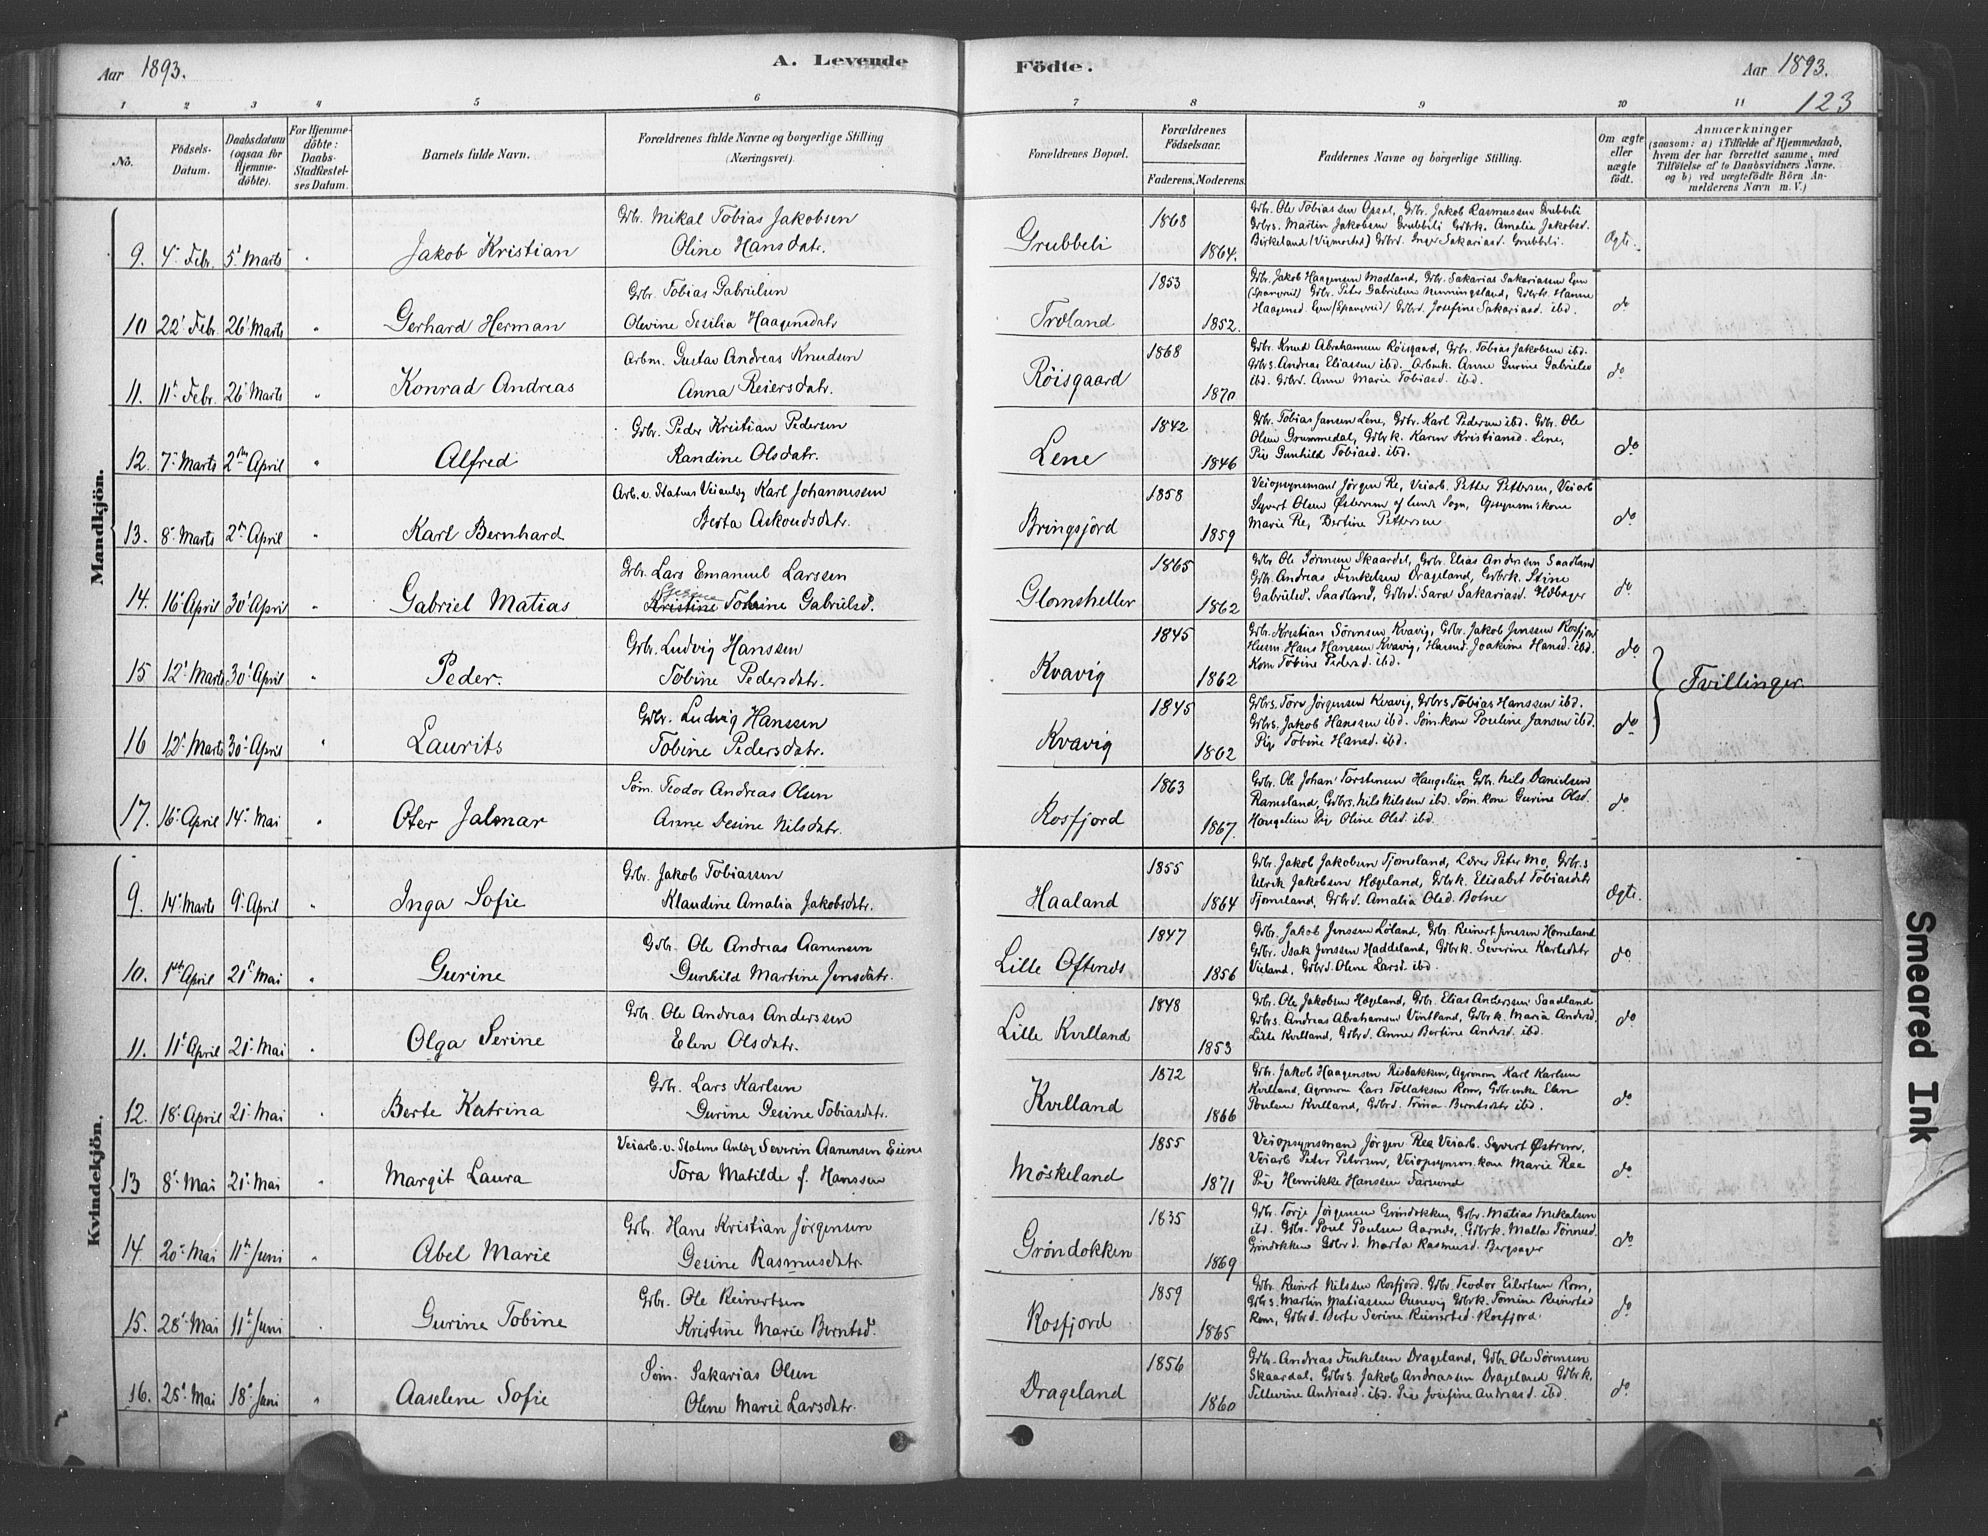 Aar 1893.
A. Levende
Födte.
Aar 1893.
123
1 2 3 4 5 6 7 8 9 10 11
No.
Födsels-
Datum.
Daabsdatum
(ogsaa for
Hjemme-
döbte).
For Hjemme-
döbte:
Daabs-
Stadfæstel-
ses Datum.
Barnets fulde Navn.
Forældrenes fulde Navne og borgerlige Stilling
(Næringsvei).
Forældrenes Bopæl.
Forældrenes
Födselsaar.
Faderens. Moderens.
Faddernes Navne og borgerlige Stilling.
Om ægte
eller
uægte
födt.
Anmærkninger
(saasom: a) i Tilfælde af Hjemmedaab,
hvem der har forrettet samme, med
Tilföielse af to Daabsvidners Navne.
og b) ved uægtefödte Börn An-
melderens Navn m. V.)
Mandkjön.
9. 4' Febr. 5' Marts Jakob Kristian
Gbr. Mikal Tobias Jakobsen
Oline Hansdatr.
Grubbeli 1868 1864.
Gbr. Ole Tobiassen Opsal, Gbr. Jakob Rasmussen Grubbeli
Gbrs. Martin Jakobsen Grubbeli Gbrk. Amalia Jakobsd.
Birkeland (Vigmostad) Gbrd. Inger Sakariasd. Grubbeli.
Ægte.
10 22' Febr. 26' Marts " Gerhard Herman
Gbr. Tobias Gabrielsen
Olevine Sesilia Haagensdatr
Troland 1853 1852.
Gbr. Jakob Haagensen Madland, Gbr. Sakarias Sakariassen
Gbr. Peter Gabrielsen Gbrk. Hanne
Haagensd. Gbrd. Josefine Sakariasd. ibd.
do
11. 11' Febr. 26' Marts " Konrad Andreas
Arbm. Gustav Andreas Knudsen
Anna Reiersdatr.
Röisgaard 1868 1870
Gbr. Knud Abrahamsen Röisgaard, Gbr. Tobias Jakobsen ibd.
Gbrs. Andreas Eliassen ibd. Arbmk. Anne Gurine Gabrielsd
ibd. Gbrd. Anne Marie Tobiasd. ibd.
do
12. 7' Marts 2den April " Alfred
Gbr. Peder Kristian Pedersen
Randine Olsdatr.
Lene 1842 1846
Gbr. Tobias Jansen Lene, Gbr. Karl Pedersen ibd. Gbr. Ole
Olsen Grummedal, Gbrk. Karen Kristiansd. Lene,
Pige Gunhild Tobiasd. ibd.
do
13. 8' Marts 2den April " Karl Bernhard
Arb. v. Statens Veianlæg Karl Johannessen
Berta Askoudsdatr.
Bringsjord 1858 1859
Veiopsynsmand Jörgen Re, Veiarb. Petter Pettersen, Veiarb
Syvert Olsen af Lunde Sogn, Opsynsm.skone
Marie Re, Bertine Pettersen
do
14. 16' April 30' April " Gabriel Matias
Gbr. Lars Emanuel Larssen
Kristine Tobine Gabrielsd.
Glomsheller 1865 1862
Gbr Ole Sörensen Skaardal, Gbr. Elias Andersen Saadland
Gbr. Andreas Finkelsen Drageland, Gbrk. Stine
Gabrielsd. Saadland, Gbrd. Sara Sakariasd.
do
15 12' Marts 30' April " Peder.
Gbr. Ludvig Hanssen
Tobine Pedersdatr.
Kvavig 1845 1862
Gbr. Kristian Sörensen Kvavig, Gbr. Jakob Jenssen Rosfjord
Husm Hans Hanssen Kvavig, Joakime Hansd. ibd.
Tobine Pedersd. ibd.
do Tvillinger
16 12' Marts 30' April " Laurits
Gbr. Ludvig Hanssen
Tobine Pedersdatr.
Kvavig 1845 1862
Gbrs. Tore Jörgensen Kvavig, Gbrs Tobias Hanssen ibd.
Gbrs. Jakob Hanssen ibd. Söm.kone Pauline Jansen ibd.
Pige Tobine Hansd. ibd.
do
17. 16' April 14' Mai " Oter Jalmar
Söm. Teodor Andreas Olsen
Anne Desine Nilsdatr.
Rosfjord 1863 1867.
Gbr. Ole Johan Torstensen Haugelien Gbr. Nils Danielsen
Ramsland, Gbrs. Nils Nilssen ibd. Söm.kone Gurine Olsd.
Haugelien Pige Oline Olsd. ibd.
do
Kvindekjön.
9. 14' Marts 9' April " Inga Sofie
Gbr. Jakob Tobiassen
Klaudine Amalia Jakobsdatr.
Haaland 1855 1864
Gbr. Jakob Jakobsen Tjomsland, Lærer Peter Mo, Gbr.s
Ulrik Jakobsen Hægeland, Gbrk. Elisabet Tobiasdatr
Tjomsland, Gbrd. Amalia Olsd. Botne
Ægte.
10. 1ste April 21' Mai " Gurine
Gbr. Ole Andreas Aanensen
Gunhild Martine Jensdatr.
Lille Oftenæs 1847 1856
Gbr. Jakob Jenssen Löland, Gbr. Reinert Jenssen Homeland
Gbr. Isak Jenssen Haddeland, Gbrk. Severine Karlsdatr
Vieland, Gbrd. Olene Larsd. ibd.
do
11. 11' April 21' Mai " Olga Serine
Gbr. Ole Andreas Anderssen
Elen Olsdatr.
Lille Kvilland 1848 1853
Gbr. Ole Jakobsen Hægeland, Gbr. Elias Anderssen Saadland
Gbrs. Andreas Abrahamsen Vintland, Gbrk. Maria Andersd.
Lille Kvilland, Gbrd. Anne Bertine Andersd. ibd.
do
12. 18' April 21' Mai " Berte Katrina
Gbr. Lars Karlsen
Gurine Desine Tobiasdatr.
Kvilland 1872 1866
Gbr. Jakob Haagensen Risbakken, Agronom Karl Karlsen
Kvilland, Agronom Lars Tollaksen Rom, Gbrenke Elen
Poulsen Kvilland, Gbrd. Trina Berntsdatr ibd.
do
13 8' Mai 21' Mai " Margit Laura
Veiarb. v. Statens Anlæg Severin Aanensen Eiene
Tora Matilde f. Hanssen
Möskeland 1855 1871
Veiopsynsmand Jörgen Rea Veiarb. Syvert Östrem,
Veiarb Peter Petersen, Veiopsynsm.kone Marie Rea
Pige Henrikke Hanssen Farsund
do
14. 20' Mai 11te Juni " Abel Marie
Gbr. Hans Kristian Jörgensen
Gesine Rasmusdatr.
Gröndokken 1835 1869
Gbr. Torje Jörgensen Gröndokken, Gbr. Matias Mikalsen
ibd. Gbr. Poul Poulsen Aarnes, Gbrk. Malla Tönnesd.
Gröndokken Gbrd. Marta Rasmusd. Bergsager
do
15. 28' Mai 11te Juni " Gurine Tobine
Gbr. Ole Reinertsen
Kristine Marie Berntsd.
Rosfjord 1859 1865
Gbr. Reinert Nilssen Rosfjord, Gbr. Teodor Eilertsen Rom,
Gbrs. Martin Matiassen Gbrk. Tomine Reinertsd
Rom, Gbrd. Berte Serine Reinertsd. Rosfjord.
do
16. 25' Mai 18' Juni " Aaselene Sofie
Söm. Sakarias Olsen
Olene Marie Larsdatr.
Drageland 1856 1860
Gbr. Andreas Finkelsen Drageland, Gbr. Ole Sörensen
Skaardal, Gbrs. Jakob Andreassen Drageland Gbrk.
Tellevine Andriasd. ibd. Pige Josefine Andreasd. ibd.
do
Smeared Ink